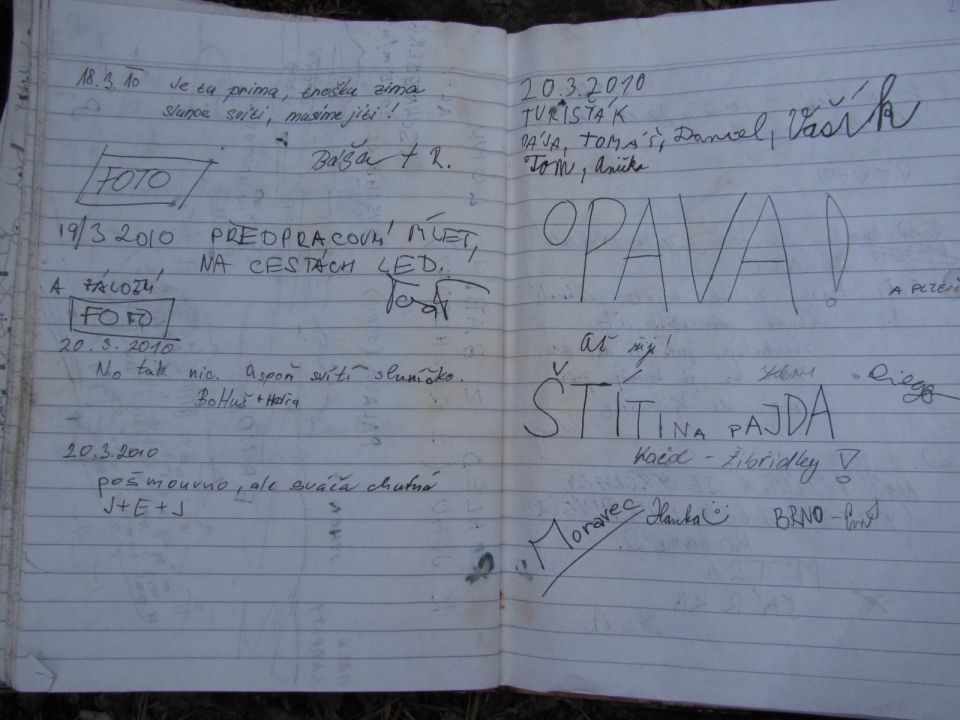 18.3.10 Je tu prima, trošku zima
slunce svítí, musíme jíti!
Báša + R.
FOTO
19/3 2010 PŘEDPRACOVNÍ
NA CESTÁCH LED.
A
FOTO
20.3.2010
No tak nic. Aspoň svítí sluníčko.
BoHuš + Hača
20.3.2010
pošmourno, ale sváča chutná
J+E+J
20.3.2010
TURISŤÁK
DÁJA, TOMÁŠ, Daniel, Vašík
TOM, Anička
OPAVA!
A PLZEŇ
Ať žijí!
Diego
ŠTÍTINA PAJDA
Kačol - Žibřidky!
Moravec Hanka BRNO -